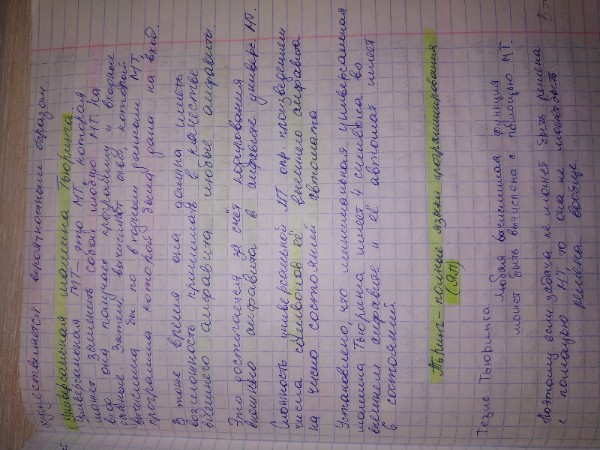 осуществляется вероятностным образом.
Универсальная машина Тьюринга
Универсальная МТ – это МТ, которая
может заменить собой любую МТ. На
вход она получает программу и входные
данные. Затем вычисляет ответ, который
вычислила бы по входным данным МТ,
программа которой была дана на вход.
В тоже время она должна иметь
возможность принимать в качестве
внешнего алфавита любые алфавиты.
Это достигается за счёт кодирования
внешнего алфавита в алфавите универс. МТ.
Сложность универсальной МТ опр. произведением
числа символов её внешнего алфавита
на число состояний автомата
Установлено, что минимальная универсальная
машина Тьюринга имеет 4 символа во
внешнем алфавите и её автомат имеет
6 состояний
Тьюринг-полные языки программирования
(ЯП)
Тезис Тьюринга
Любая вычислимая функция
может быть вычислена с помощью МТ.
Поэтому если задача не может быть решена
с помощью МТ, то она не может быть
решена вообще